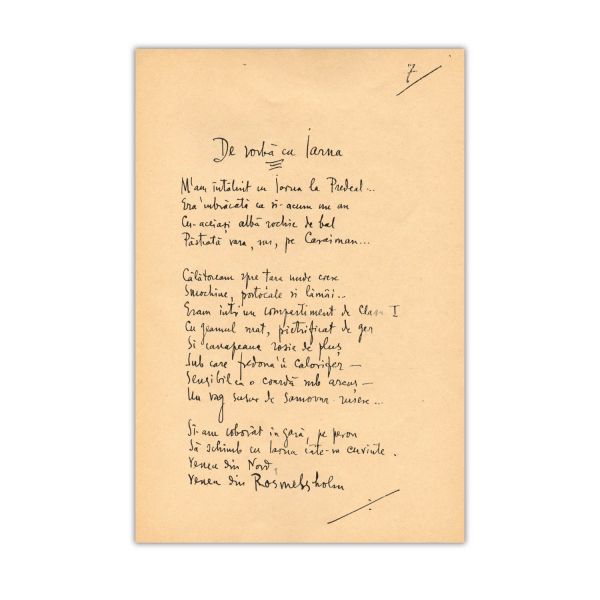 7
De vorbă cu Iarna
M'am întâlnit cu Iarna la Predeal...
Era 'mbrăcată ca si-acum un an
Cu-aceiași albă rochie de bal
Păstrată vara, sus, pe Caraiman...
Călătoream spre țara unde cresc
Smochine, portocale si lămâi..
Eram într'un compartiment de Clasa I
Cu geamul mat, pietrificat de ger
Si canapeaua rosie de pluș
Sub care fredona 'n calorifer —
Sensibil ca o coardă sub arcuș —
Un vag susur de Samovar rusesc...
Si-am coborât in gară, pe peron
Să schimb cu Iarna câte-va cuvinte.
Venea din Nord,
Venea din Rosmersholm